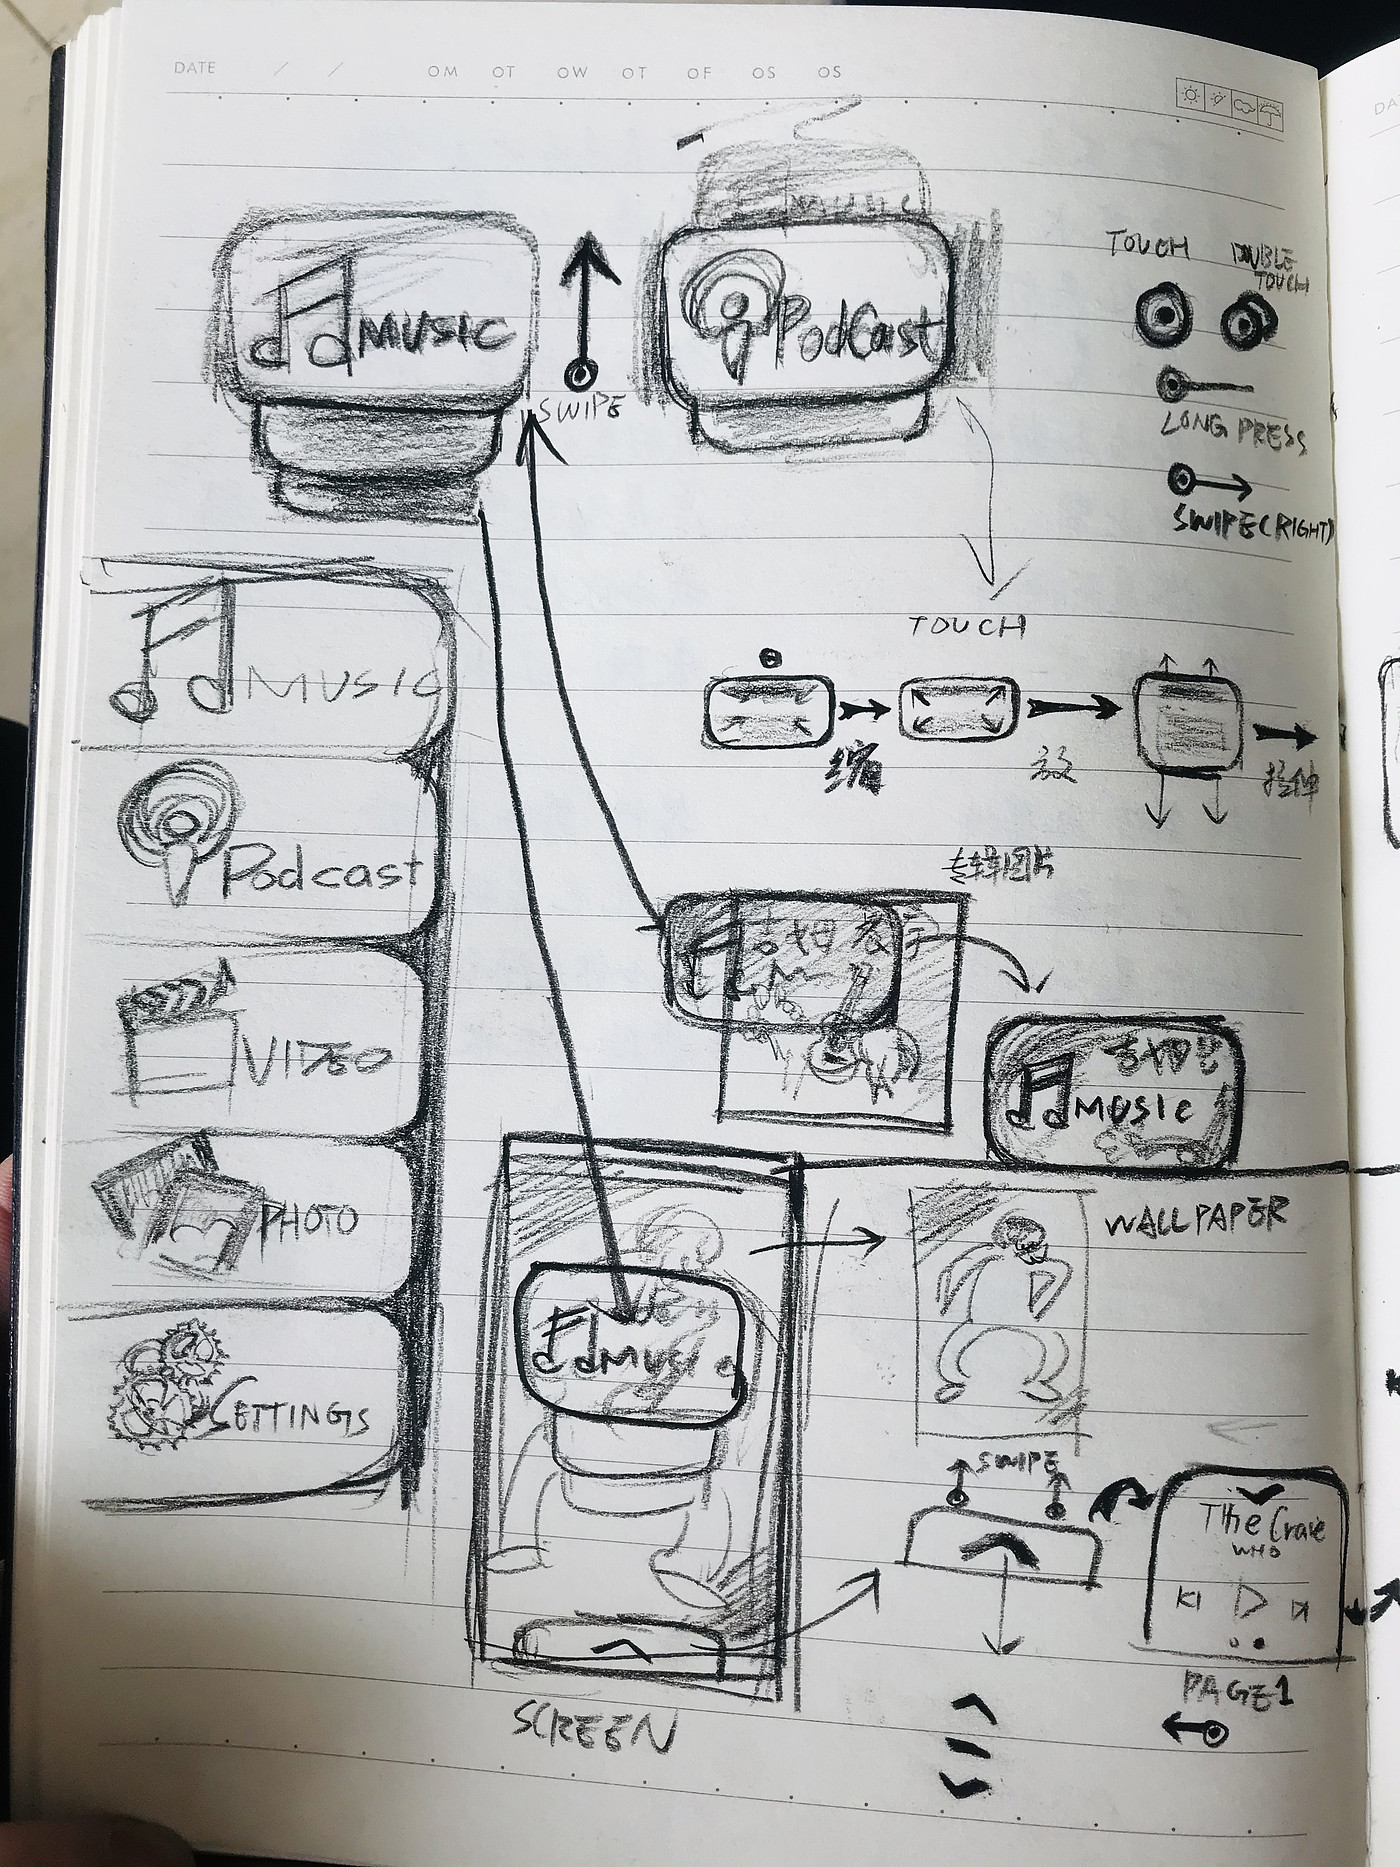 DATE / / OM OT OW OT OF OS OS
MUSIC
MUSIC
SWIPE
PodCast
TOUCH
DOUBLE
TOUCH
LONG PRESS
SWIPE(RIGHT)
MUSIC
Podcast
VIDEO
PHOTO
SETTINGS
TOUCH
缩
放
拉伸
专辑图片
MUSIC
WALLPAPER
MUSIC
SCREEN
SWIPE
THe Crave
WHO
PAGE1